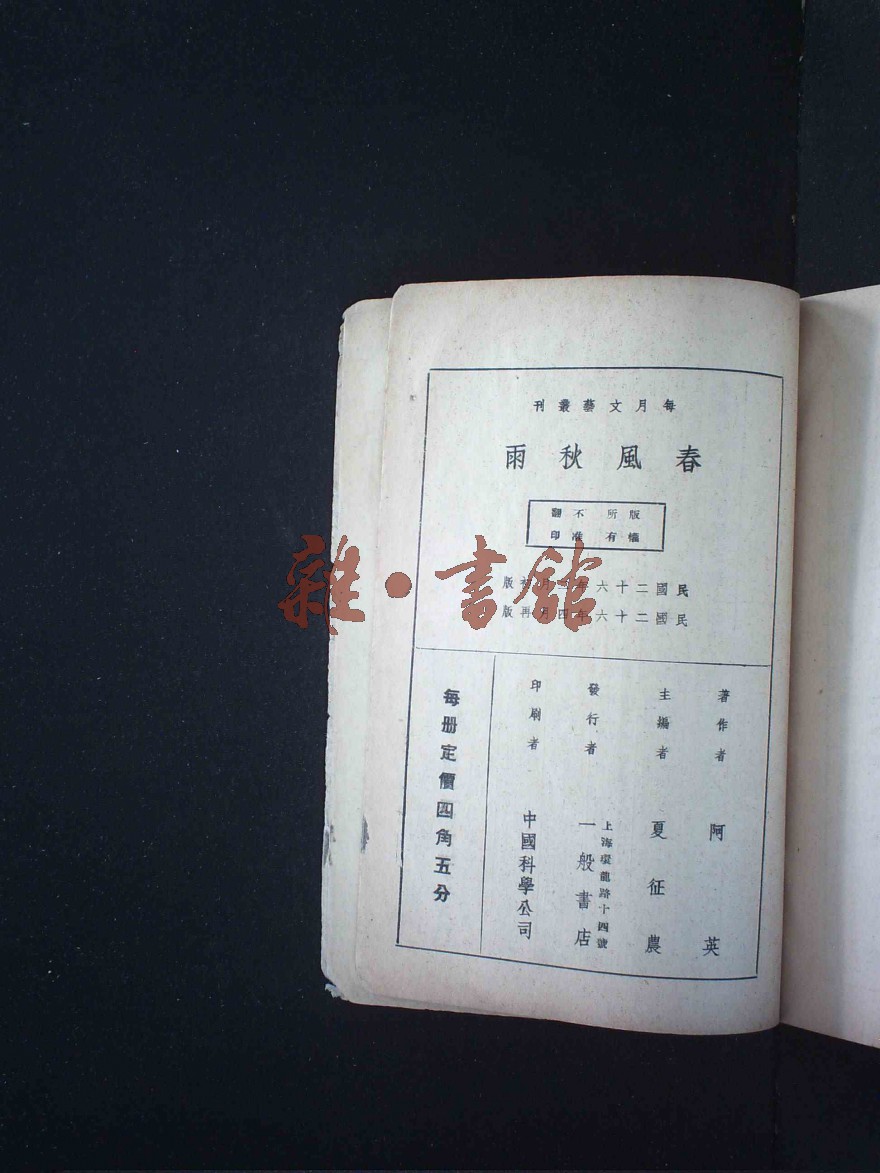 每月文藝叢刊
春風秋雨
版權所有
不准翻印
民國二十六年三月初版
民國二十六年四月再版
著作者 阿英
主編者 夏征農
發行者 上海環龍路十四號 一般書店
印刷者 中國科學公司
每册定價四角五分
雜·書館